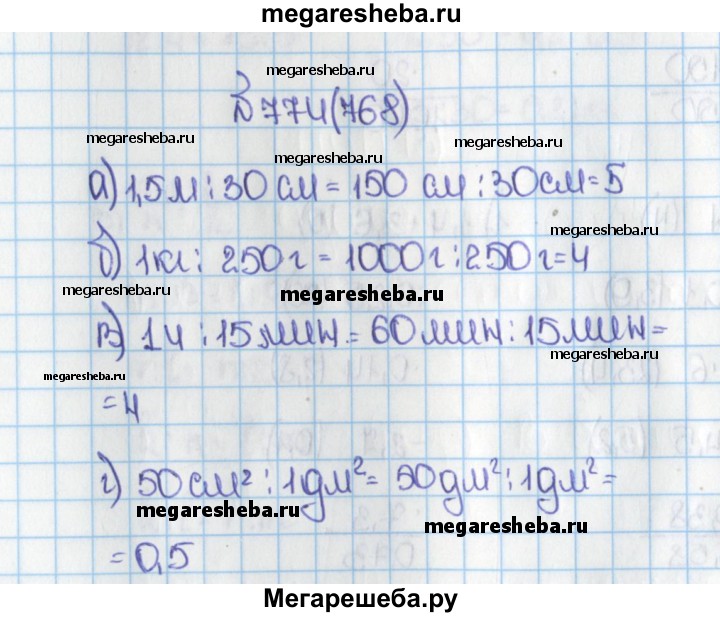 megaresheba.ru
megaresheba.ru
№774(768)
megaresheba.ru
megaresheba.ru
megaresheba.ru
а) 1,5м : 30 см = 150 см : 30см = 5
megaresheba.ru
б) 1кг : 250г = 1000г : 250г = 4
megaresheba.ru
megaresheba.ru
в) 1ч : 15мин = 60мин : 15мин =
megaresheba.ru
megaresheba.ru
= 4
г) 50см² : 1дм² = 50дм² : 1дм² =
megaresheba.ru
megaresheba.ru
= 0,5
Мегарешеба.ру